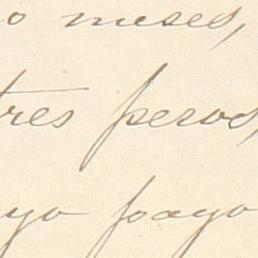 o meses,
tres pesos,
yo pago